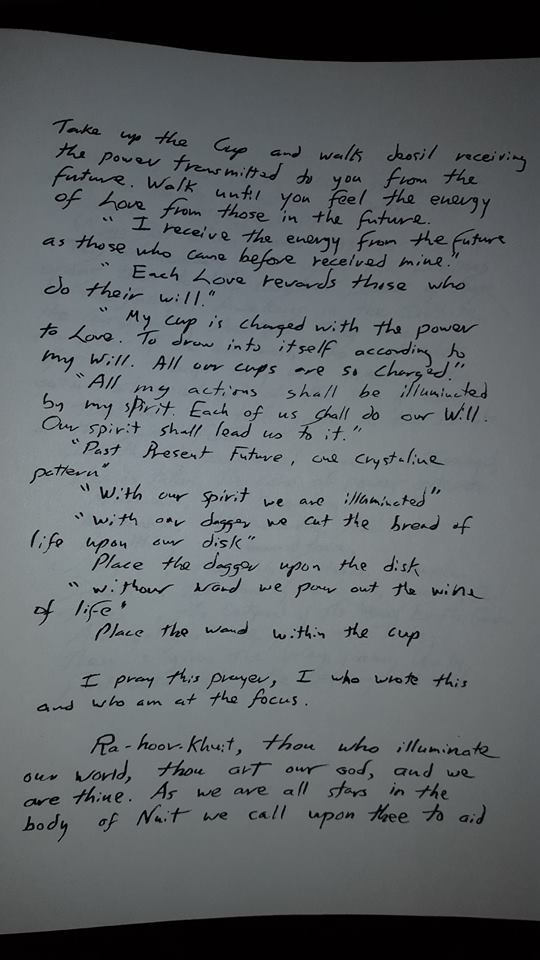 Take up the Cup and walk deosil receiving
the power transmitted to you from the
future. Walk until you feel the energy
of Love from those in the future.
" I receive the energy from the future
as those who came before received mine."
" Each Love rewards those who
do their will."
" My cup is charged with the power
to Love. To draw into itself according to
my Will. All our cups are so charged."
"All my actions shall be illuminated
by my spirit. Each of us shall do our Will.
Our spirit shall lead us to it."
"Past Present Future, one crystaline
pattern"
"With our spirit we are illuminated"
"with our dagger we cut the bread of
life upon our disk"
Place the dagger upon the disk
" with our wand we pour out the wine
of life"
Place the wand within the cup
I pray this prayer, I who wrote this
and who am at the focus.
Ra-hoor-Khuit, thou who illuminate
our world, thou art our God, and we
are thine. As we are all stars in the
body of Nuit we call upon thee to aid